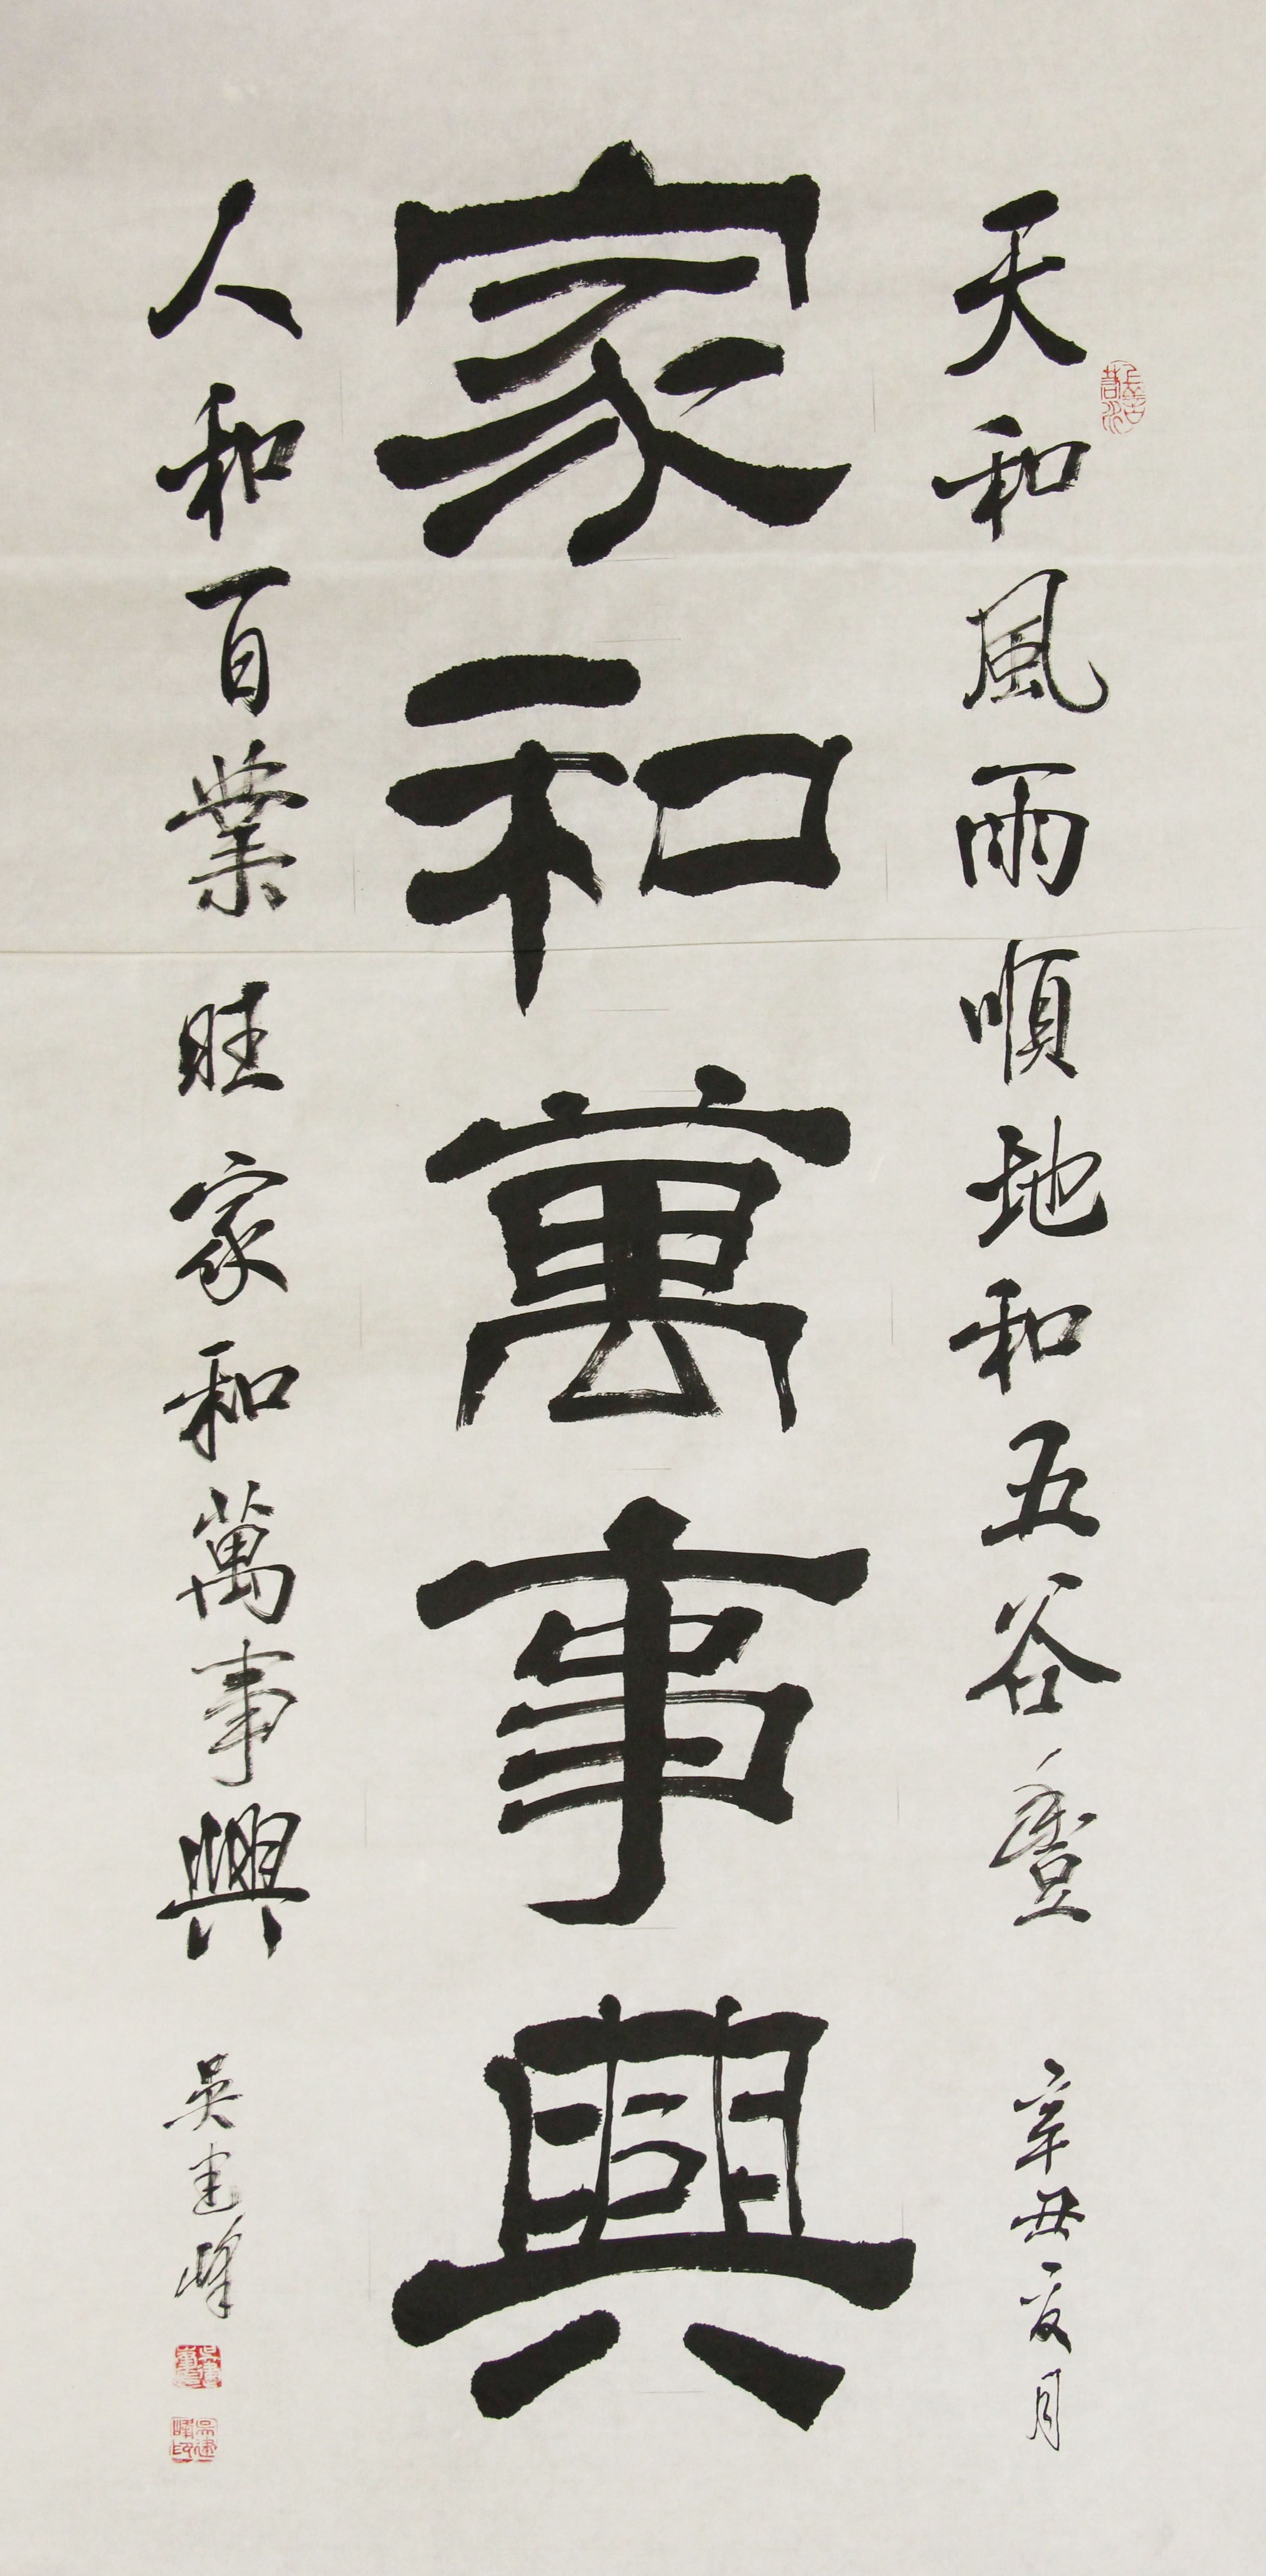 天和風雨順地和五谷豐
辛丑夏月
家和萬事興
人和百業旺家和萬事興
吳建峰
吳建峰印